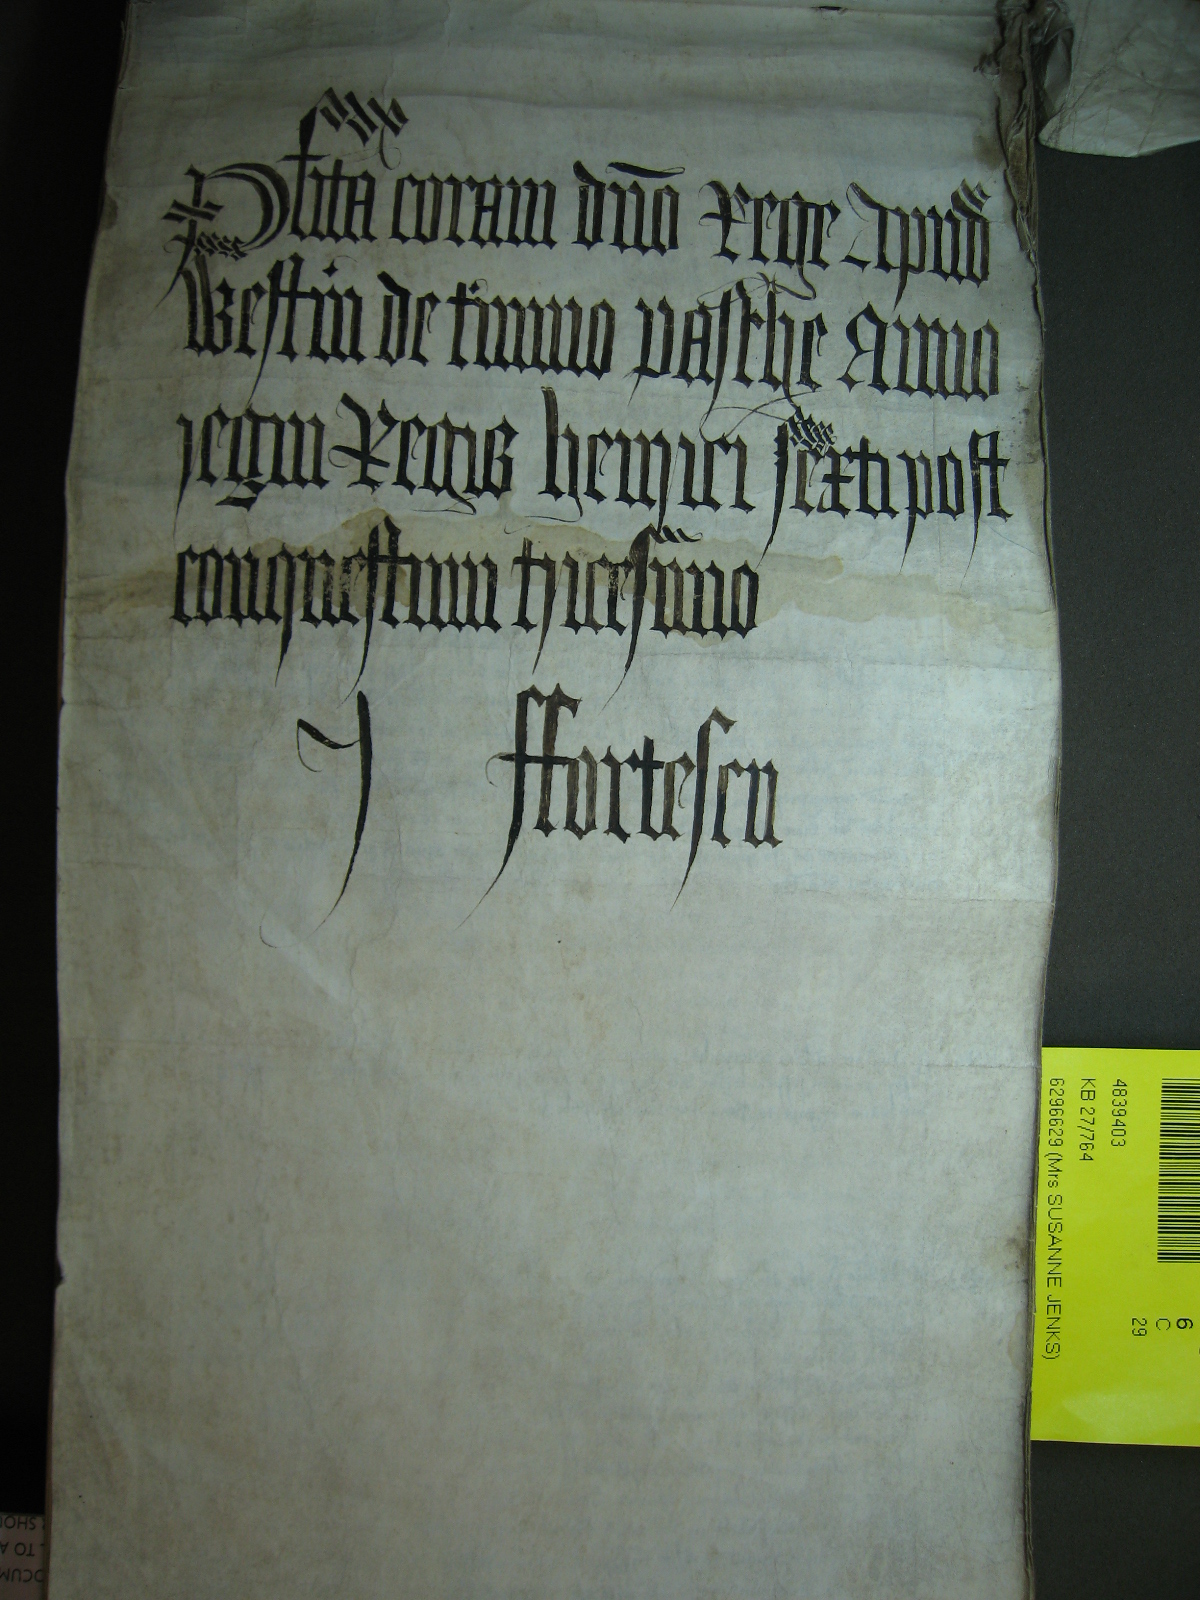 Plita coram dño Rege Apud
Westm̃ de t̃mino pasche Anno
regni Regis henrici sexti post
conquestum tricesimo
ffortescu
4839403
KB 27/764
6296629 (Mrs SUSANNE JENKS)
6
C
29
SHO
TO A
OCUM